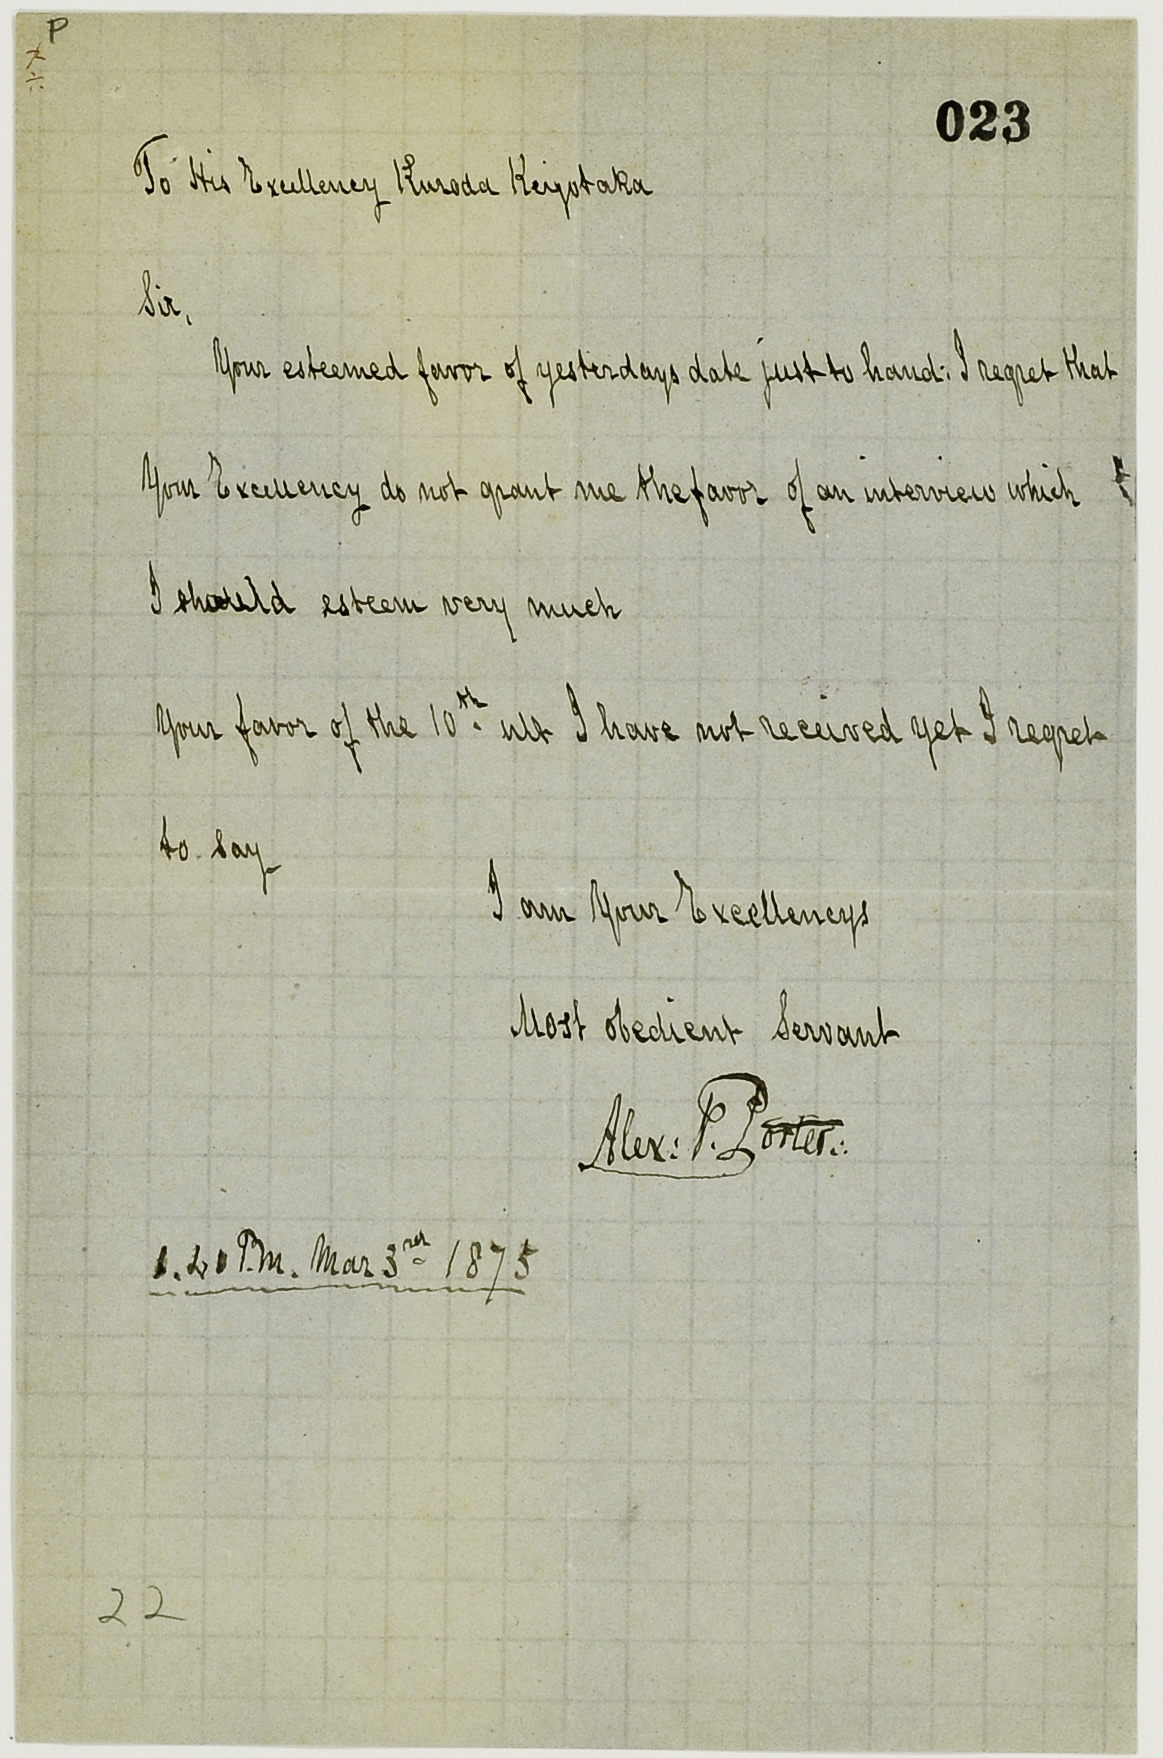 P
大
023
To His Excellency Kuroda Keiyotaka
Sir,
Your esteemed favor of yesterdays date just to hand: I regret that
Your Excellency do not grant me the favor of an interview which
I should esteem very much
Your favor of the 10th ult I have not received yet I regret
to say
I am Your Excellencys
Most obedient Servant
Alex: P. Porter:
P.m. Mar 3rd 1875
22